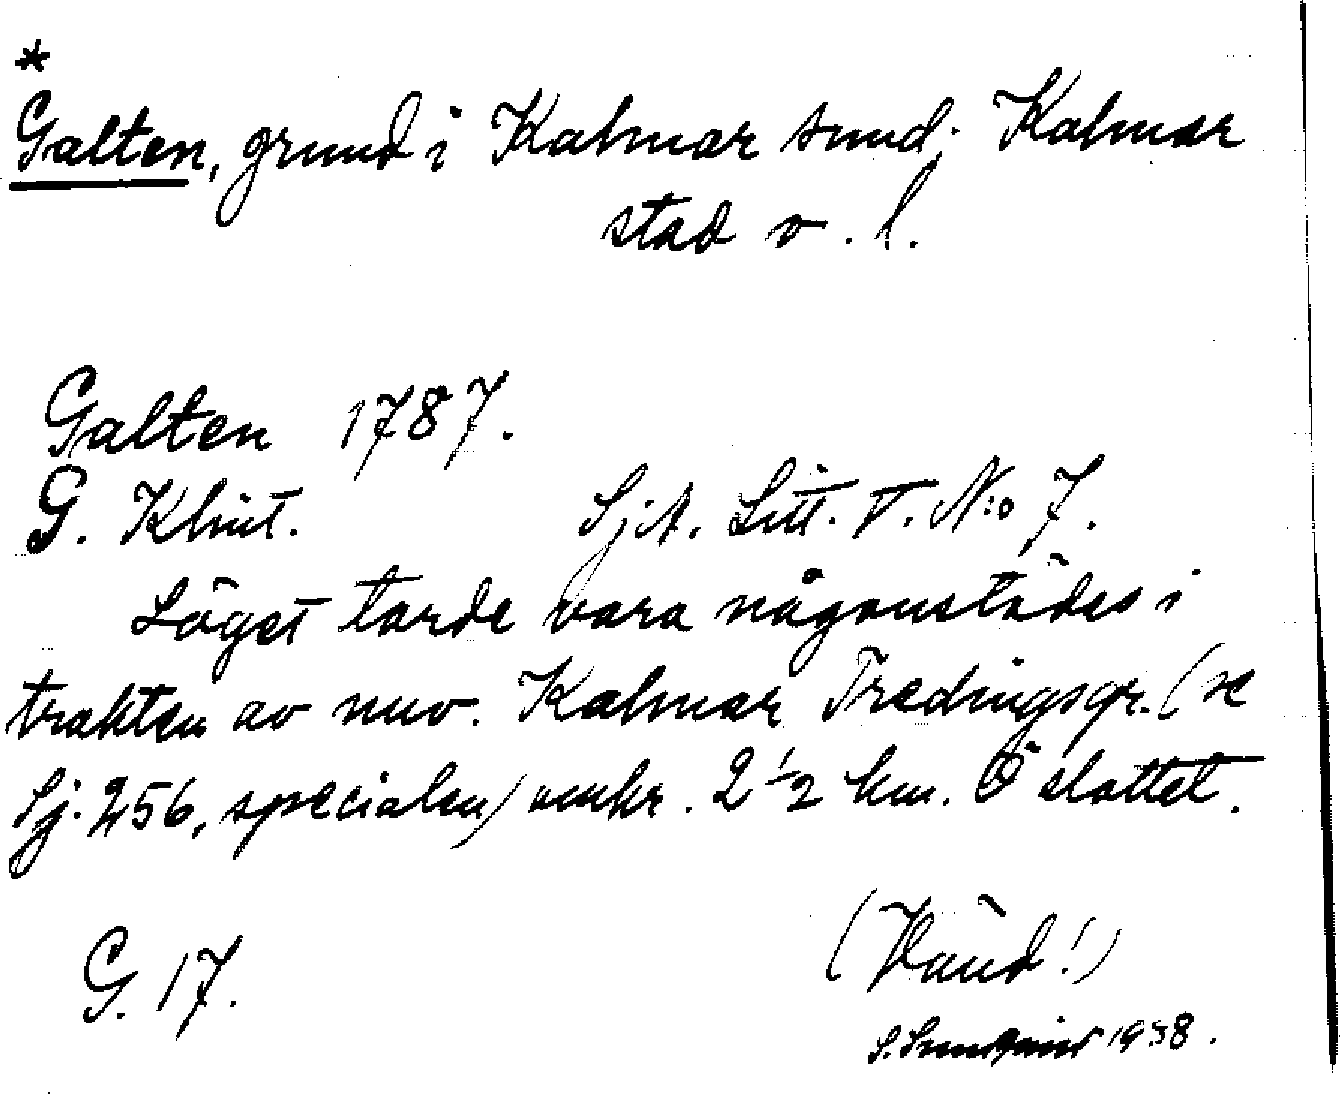 *
Galten, grund i Kalmar sund; Kalmar
stad o. l.
Galten 1787.
G. Klint. SjA. Litt. V. N:o 7.
Läget torde vara någonstädes i
trakten av nuv. Kalmar Tredingsgr. (se
Sj. 256, specialen) omkr. 2 1/2 km. Ö slottet.
G. 17. (Vänd!)
S. 1938.